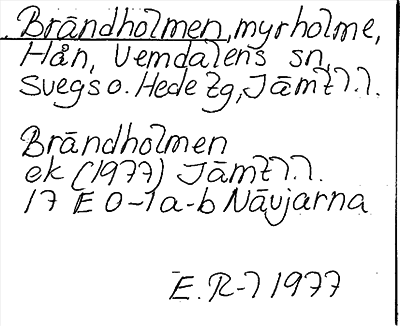 Brändholmen, myrholme,
Hån, Vemdalens sn,
Svegs o. Hede tg, Jämtl.l.
Brändholmen
ek (1977) Jämtl.l.
17 E 0-1 a-b Nävjarna
E. R-l 1977